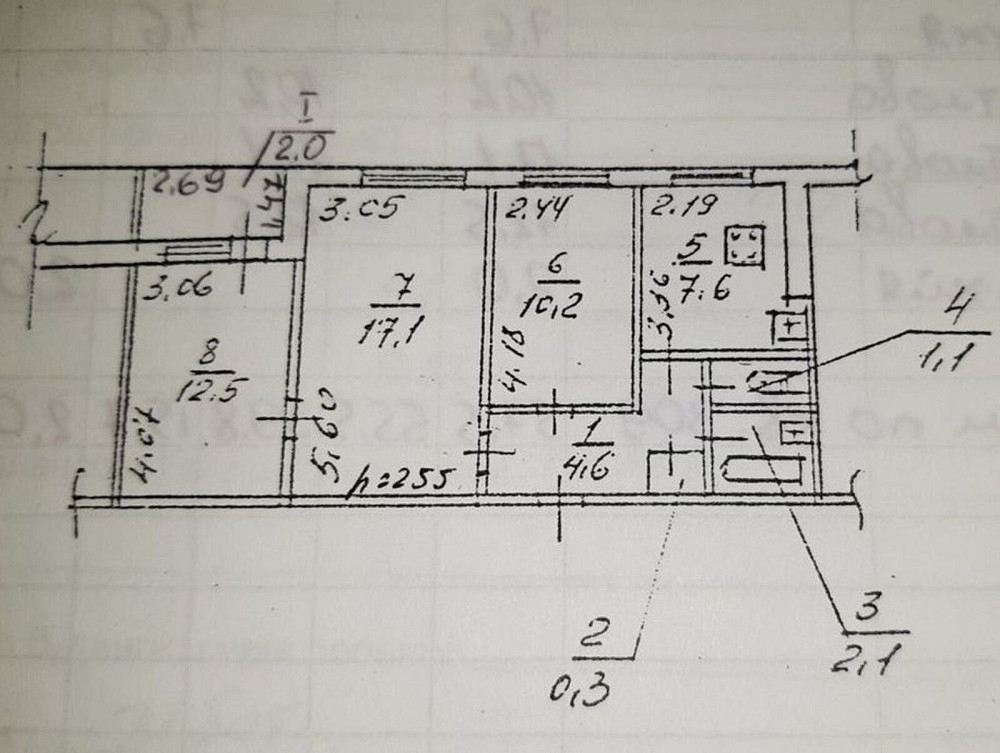 I
2.0
2.69
1,47
3.05
2.44
2.19
5
7.6
3.36
6
10,2
4.18
7
17,1
3.06
8
12.5
4.07
5.60
h=255
1
4.6
4
1,1
2
0,3
3
2,1